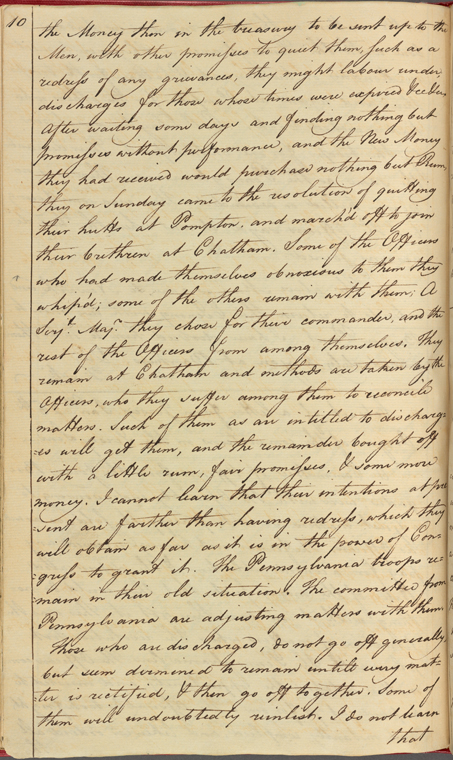 10
the Money then in the treasury to be sent up to the
Men, with other promisses to quiet them, such as a
redress of any grievances, they might labour under
discharges for those whose times were expired &c &c
After waiting some days and finding nothing but
promisses without performance, and the New Money
they had received would purchase nothing but Rum,
they on Sunday came to the resolution of quitting
their hutts at Pompton, and march'd off to join
their brethren at Chatham. Some of the Officers
who had made themselves obnoxious to them they
whip'd; some of the others remain with them; A
Serjt. Majr. they chose for their commander, and the
rest of the Officers from among themselves. They
remain at Chatham and methods are taken by the
Officers, who they suffer among them to reconcile
matters. Such of them as are intitled to discharg=
=es will get them, and the remainder bought off
with a little rum, fair promisses, & some more
money. I cannot learn that their intentions at pre
=sent are farther than having redress, which they
will obtain as far as it is in the power of Con=
=gress to grant it. The Pennsylvania troops re=
=main in their old situation. The committee from
Pennsylvania are adjusting matters with them.
Those who are discharged, do not go off generally,
but seem dermined to remain untill every mat=
=ter is rectified, & then go off together. Some of
them will undoubtedly reinlist. I do not learn
that